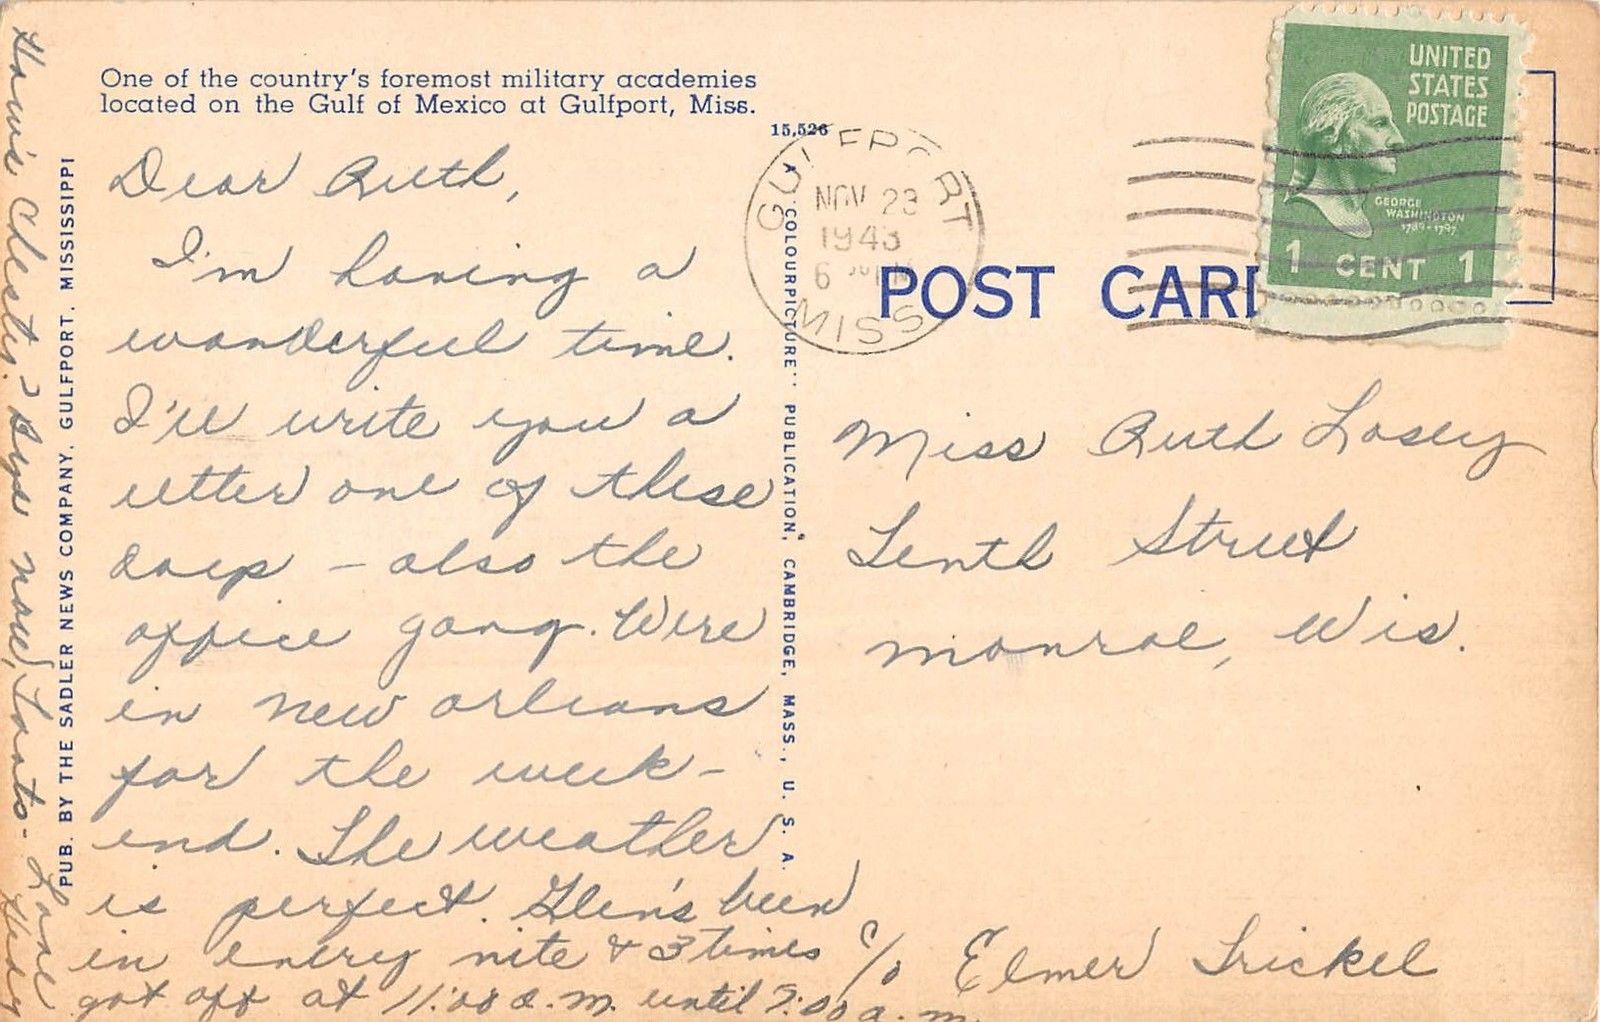 One of the country's foremost military academies
located on the Gulf of Mexico at Gulfport, Miss.
15,526
Dear Ruth,
I'm having a
wonderful time.
I'll write you a
letter one of these
days – also the
office gang. Were
in New Orleans
for the week-
end. The weather
is perfect. Glen's been
in every nite & 3 times
got off at 11:00 a.m. until 7:00 a.m.
How's Chester? Bye now, Toots- Love
Hedy
PUB. BY THE SADLER NEWS COMPANY, GULFPORT, MISSISSIPPI
A "COLOURPICTURE" PUBLICATION, CAMBRIDGE, MASS., U. S. A.
GULFPORT
NOV 23
1943
6
MISS
POST CARD
UNITED
STATES
POSTAGE
GEORGE
WASHINGTON
1789-1797
1 CENT 1
Miss Ruth Losey
Tenth Street
Monroe, Wis.
c/o Elmer Trickel